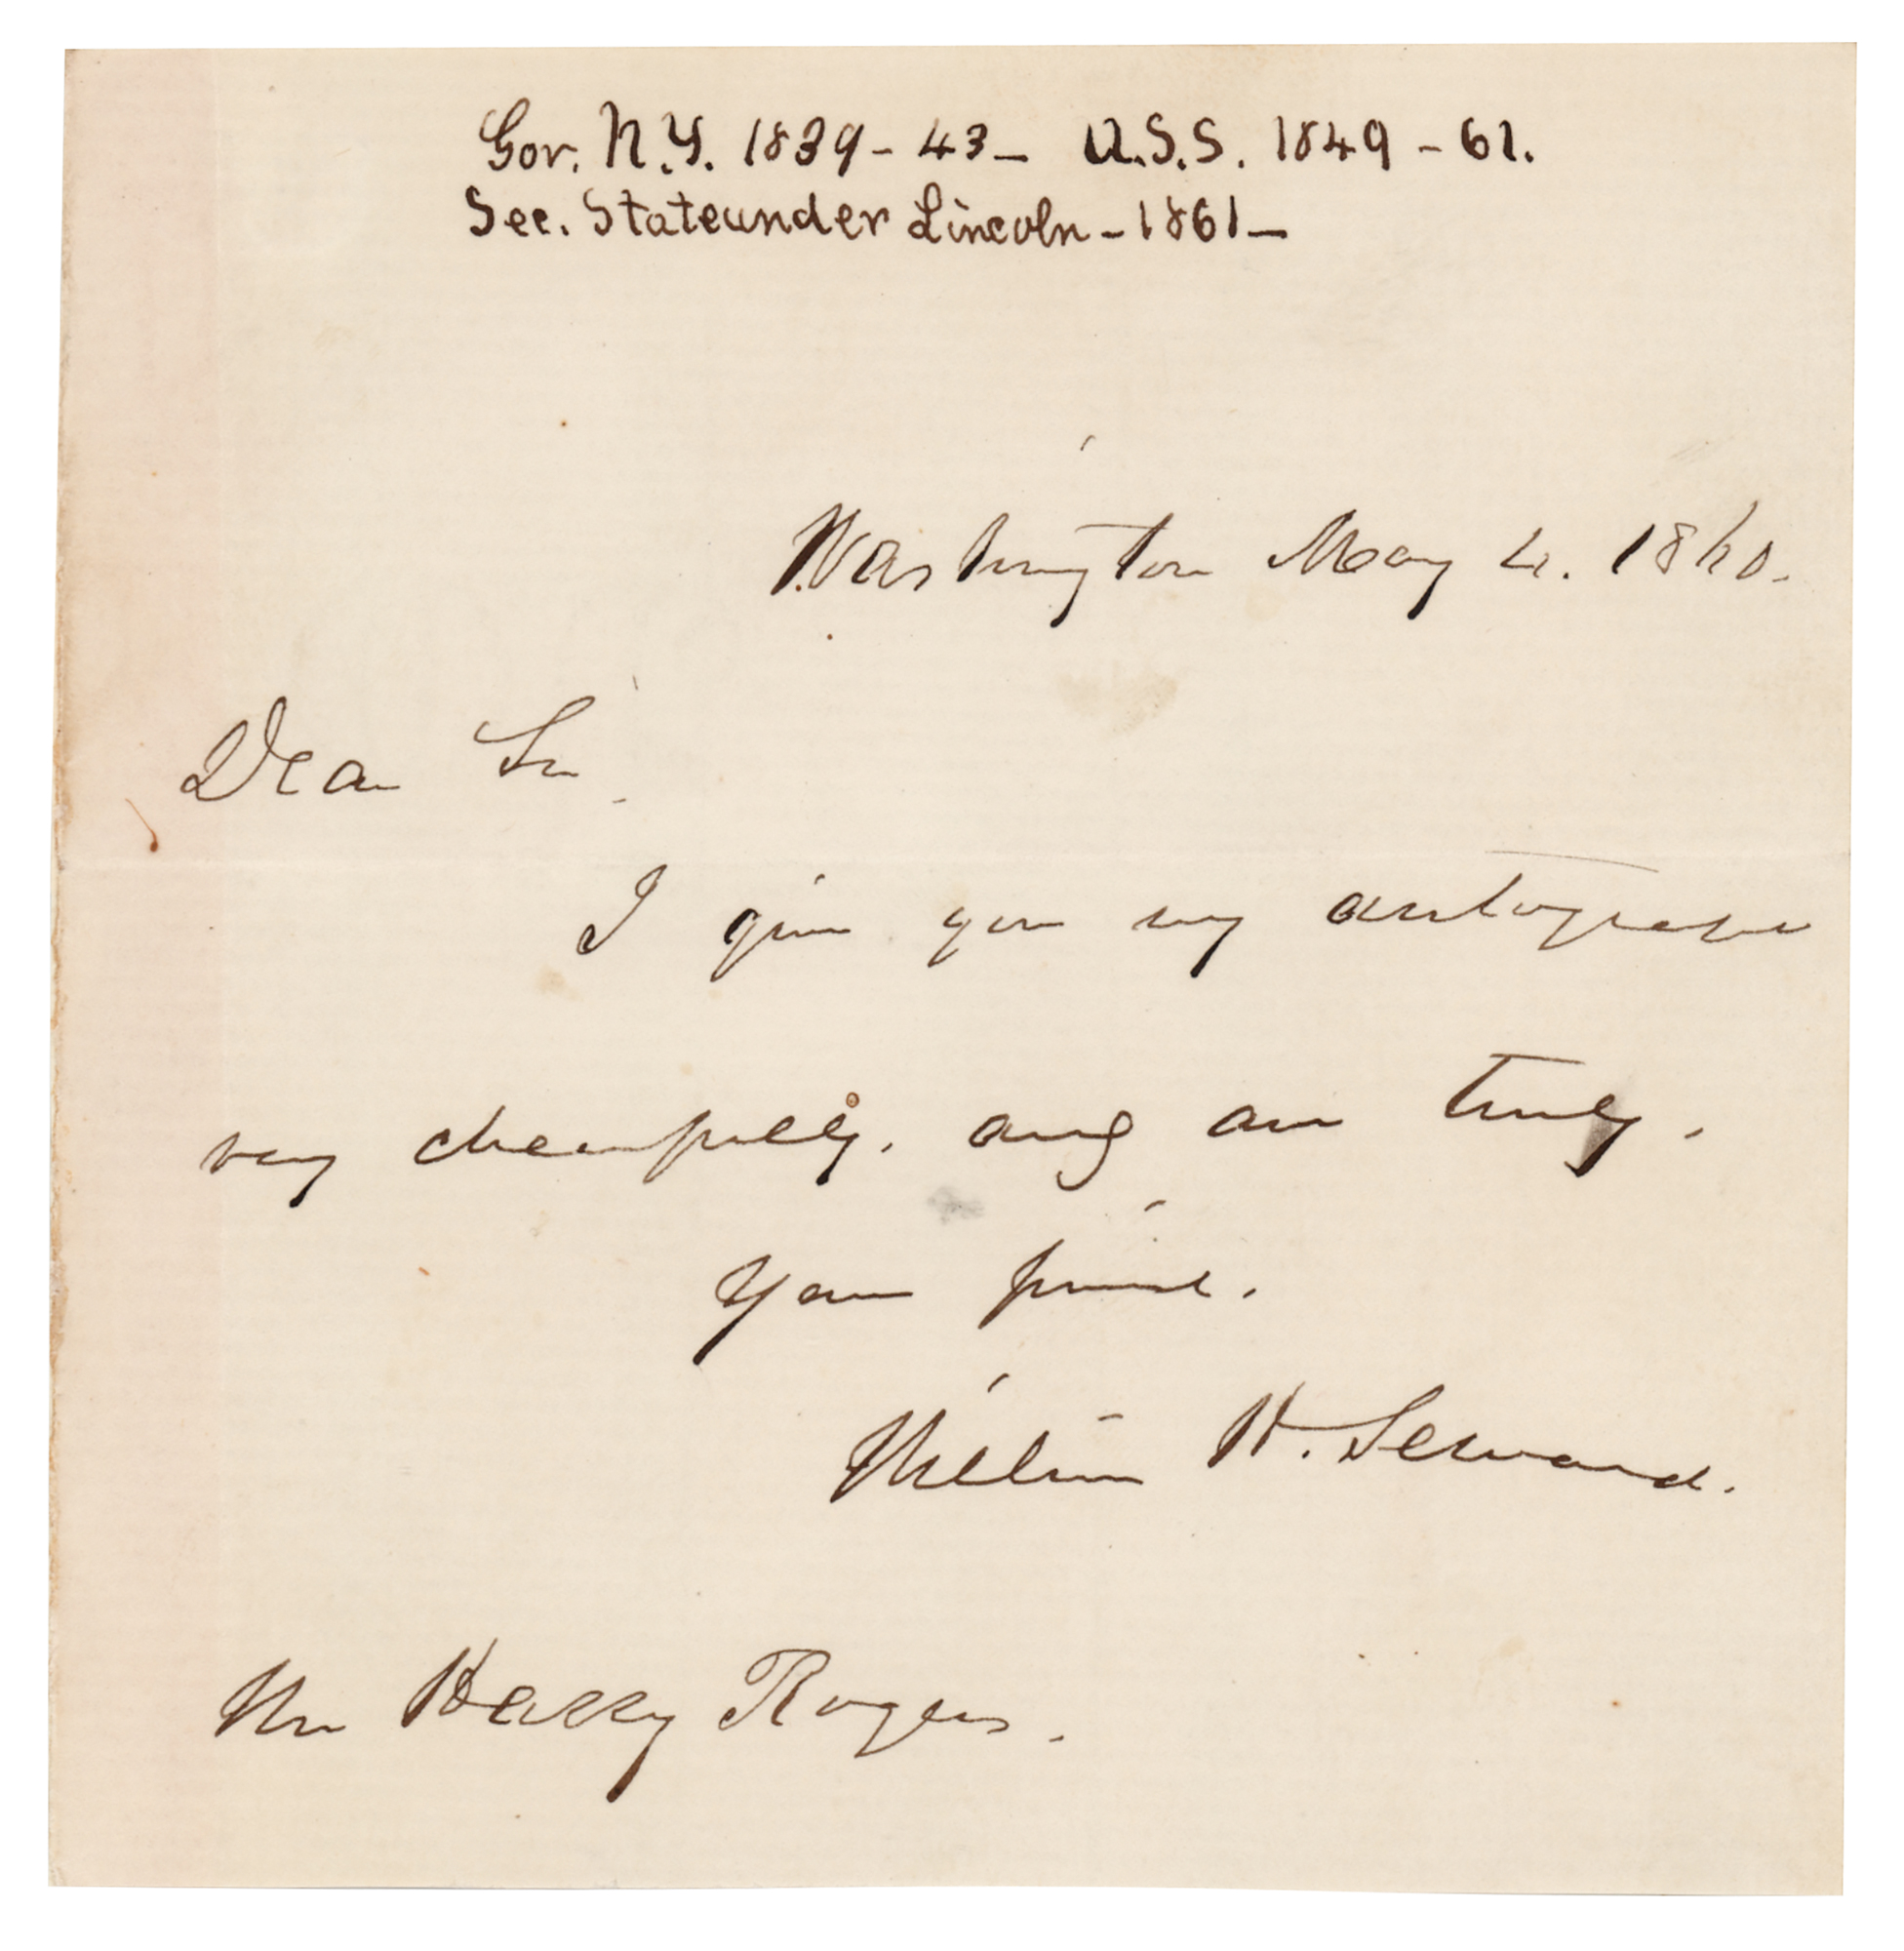 Gov. N.Y. 1839 - 43 - U.S.S. 1849 - 61.
Sec. State under Lincoln - 1861 -
Washington May 4. 1860.
Dear Sir
I give you my autograph
very cheerfully, and am truly.
Your friend.
William H. Seward.
Mr Harry Rogers.